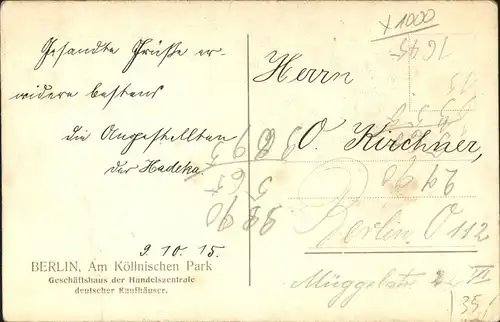 Gesandte Grüße er-
widere bestens
die Angestellten
der Hadeka.
9.10.15.
BERLIN, Am Köllnischen Park
Geschäftshaus der Handelszentrale
deutscher Kaufhäuser.
x 1000
Herrn
O. Kirchner,
Berlin O 112
Müggelstr. 2
1645
15
5895
24 90
565
9890
35